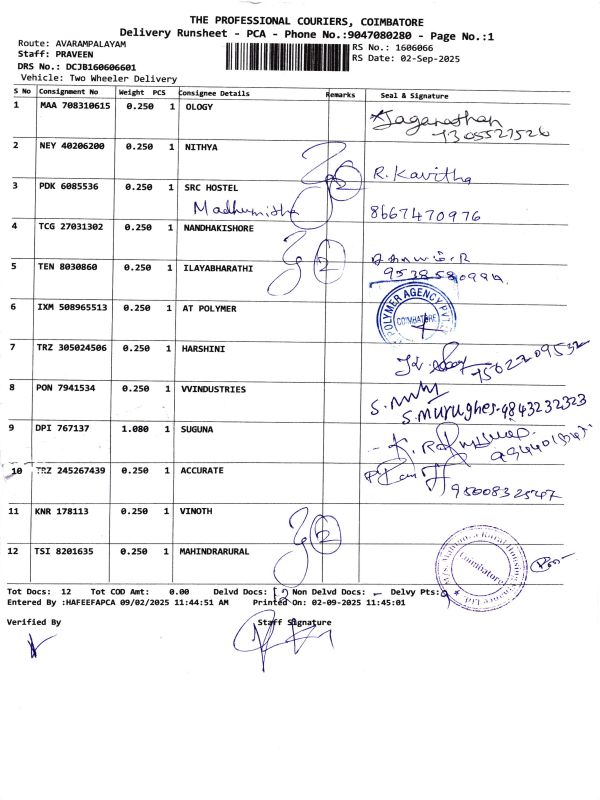 THE PROFESSIONAL COURIERS, COIMBATORE
Delivery Runsheet - PCA - Phone No.:9047080280 - Page No.:1
Route: AVARAMPALAYAM
RS No.: 1606066
Staff: PRAVEEN
RS Date: 02-Sep-2025
DRS No.: DCJB160606601
Vehicle: Two Wheeler Delivery
S No Consignment No Weight PCS Consignee Details Remarks Seal & Signature
1 MAA 708310615 0.250 1 OLOGY
Jaganathan
7305527526
2 NEY 40206200 0.250 1 NITHYA
R. Kavitha
3 PDK 6085536 0.250 1 SRC HOSTEL
Madhumitha
8667470976
4 TCG 27031302 0.250 1 NANDHAKISHORE
5 TEN 8030860 0.250 1 ILAYABHARATHI 2
6 IXM 508965513 0.250 1 AT POLYMER
POLYMER AGENCY PVT.
COIMBATORE
7 TRZ 305024506 0.250 1 HARSHINI
8 PON 7941534 0.250 1 VVINDUSTRIES
S. Murughes. 9843232323
9 DPI 767137 1.080 1 SUGUNA
10 TRZ 245267439 0.250 1 ACCURATE
9500832547
11 KNR 178113 0.250 1 VINOTH
2
12 TSI 8201635 0.250 1 MAHINDRARURAL
Coimbatore
Tot Docs: 12 Tot COD Amt: 0.00 Delvd Docs: 12 Non Delvd Docs: - Delvy Pts: 9
Entered By :HAFEEFAPCA 09/02/2025 11:44:51 AM Printed On: 02-09-2025 11:45:01
Verified By Staff Signature